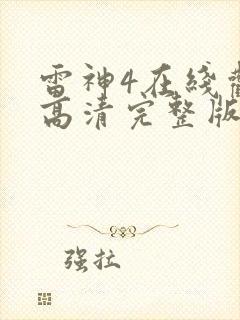 雷神4在线
高清完整版
强拉